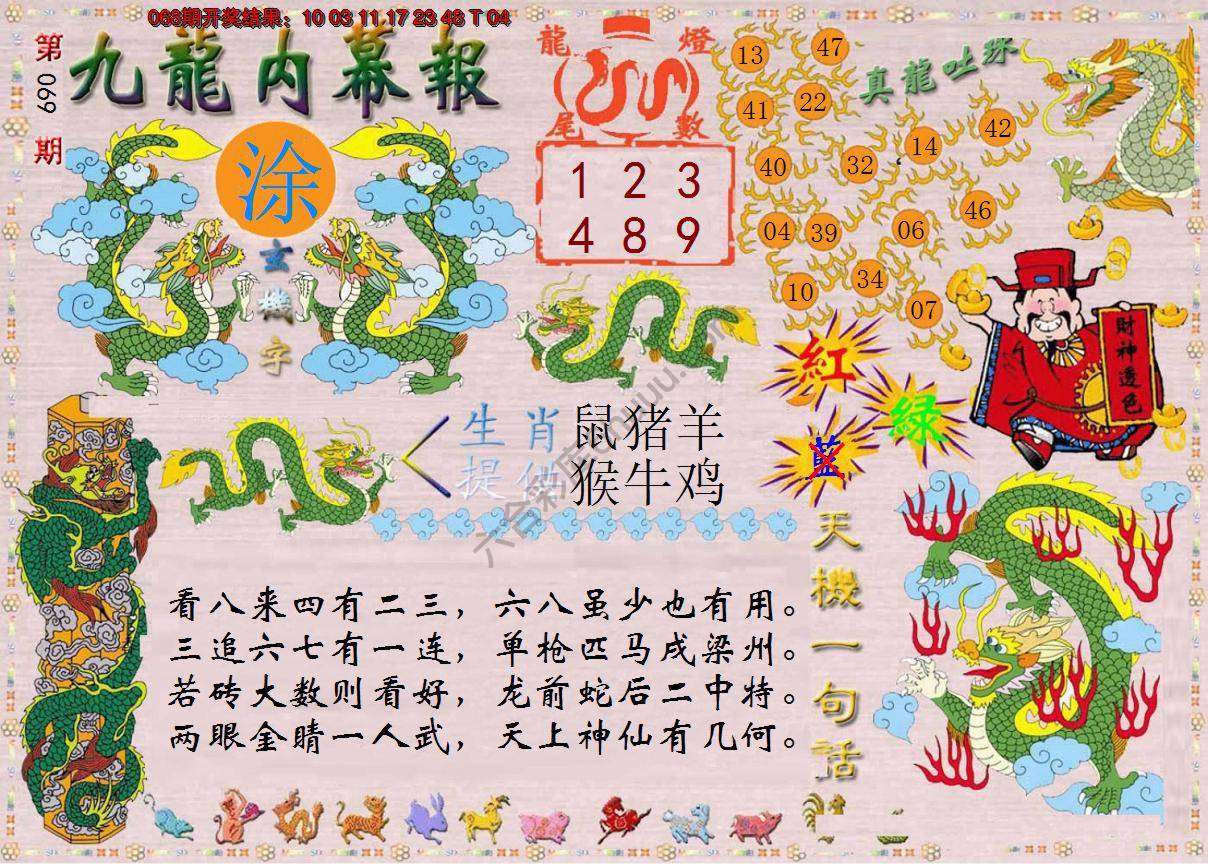 068期开奖结果：10 03 11 17 23 48 T 04
第
069
期
九龍内幕報
涂
玄
機
字
龍 燈
尾 數
1 2 3
4 8 9
真龍吐珠
13 47
41 22
14 42
40 32
46
04 39 06
34
10 07
財神透色
紅
綠
藍
生肖
提供
鼠猪羊
猴牛鸡
看八来四有二三，六八虽少也有用。
三追六七有一连，单枪匹马戍梁州。
若砖大数则看好，龙前蛇后二中特。
两眼金睛一人武，天上神仙有几何。
天
機
一
句
話